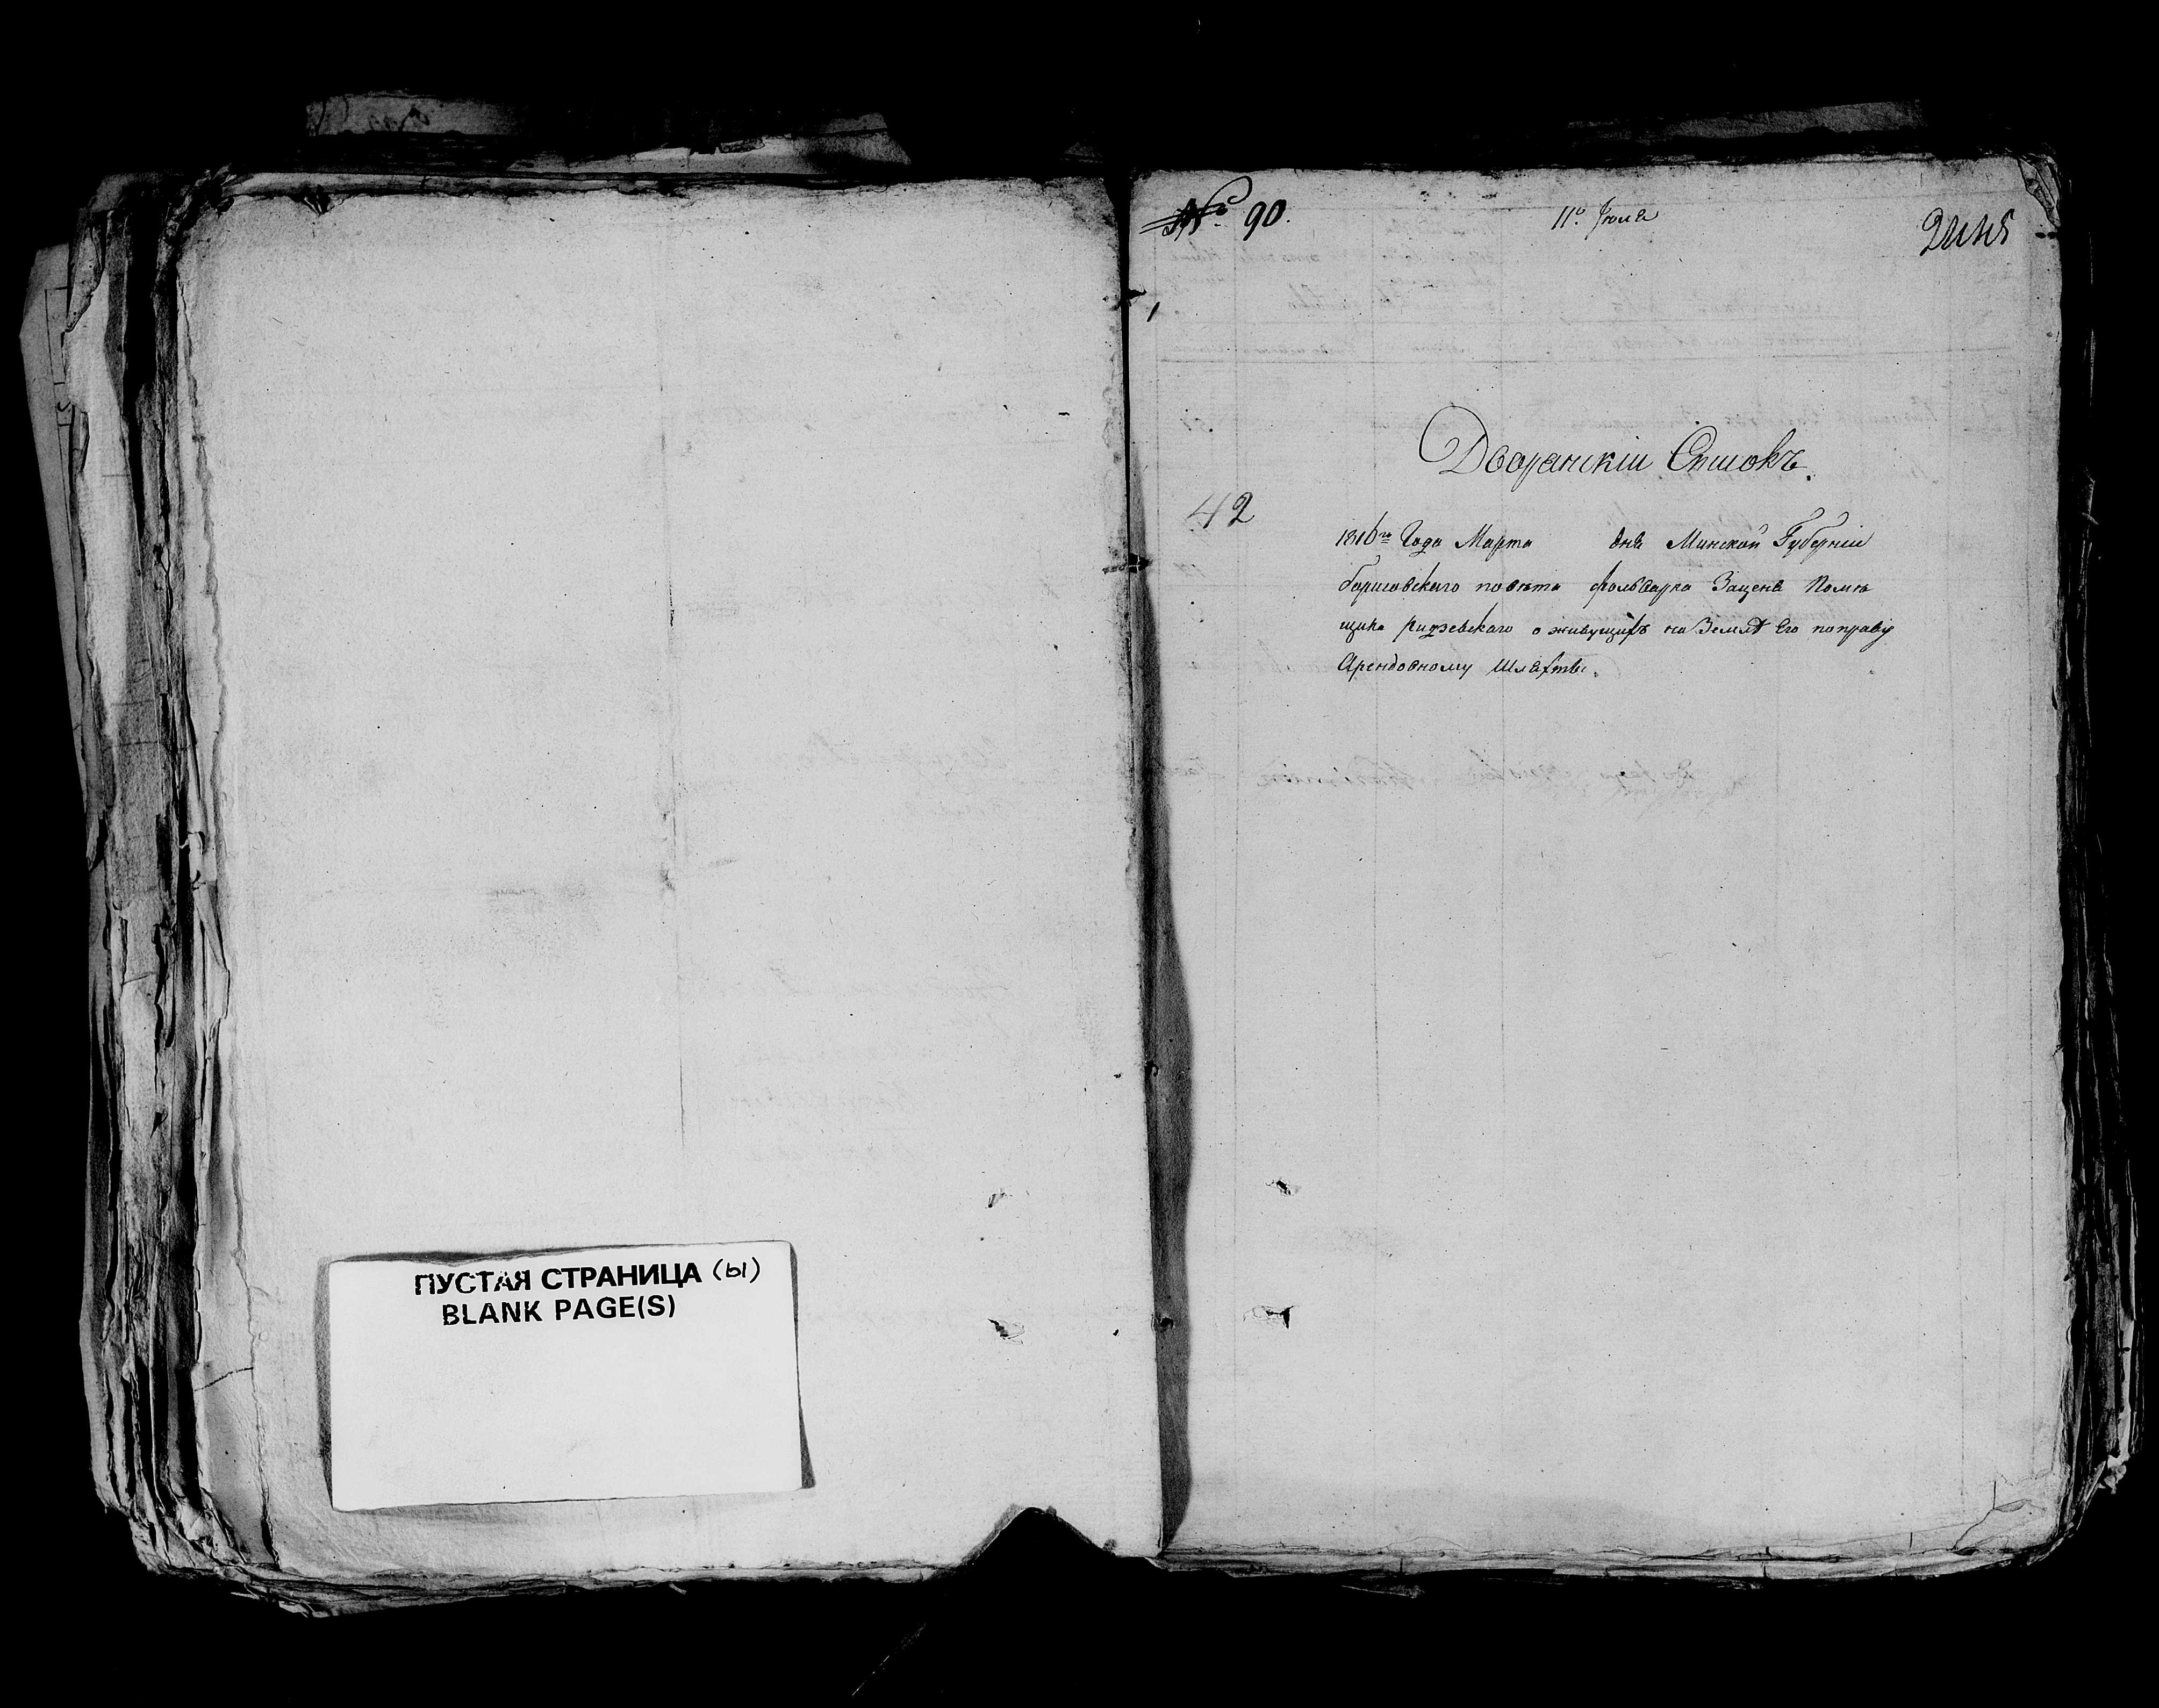 ПУСТАЯ СТРАНИЦА (ы)
BLANK PAGE(S)
№ 90.
11º Июля
42
Дворанскій Списокъ.
1816го Года Марта дня Минской Губерніи
борисовскаго повѣта фольварка Зацена Помѣ
щика о живущихъ на Землѣ Его поправу
Арендовному Шляхты.